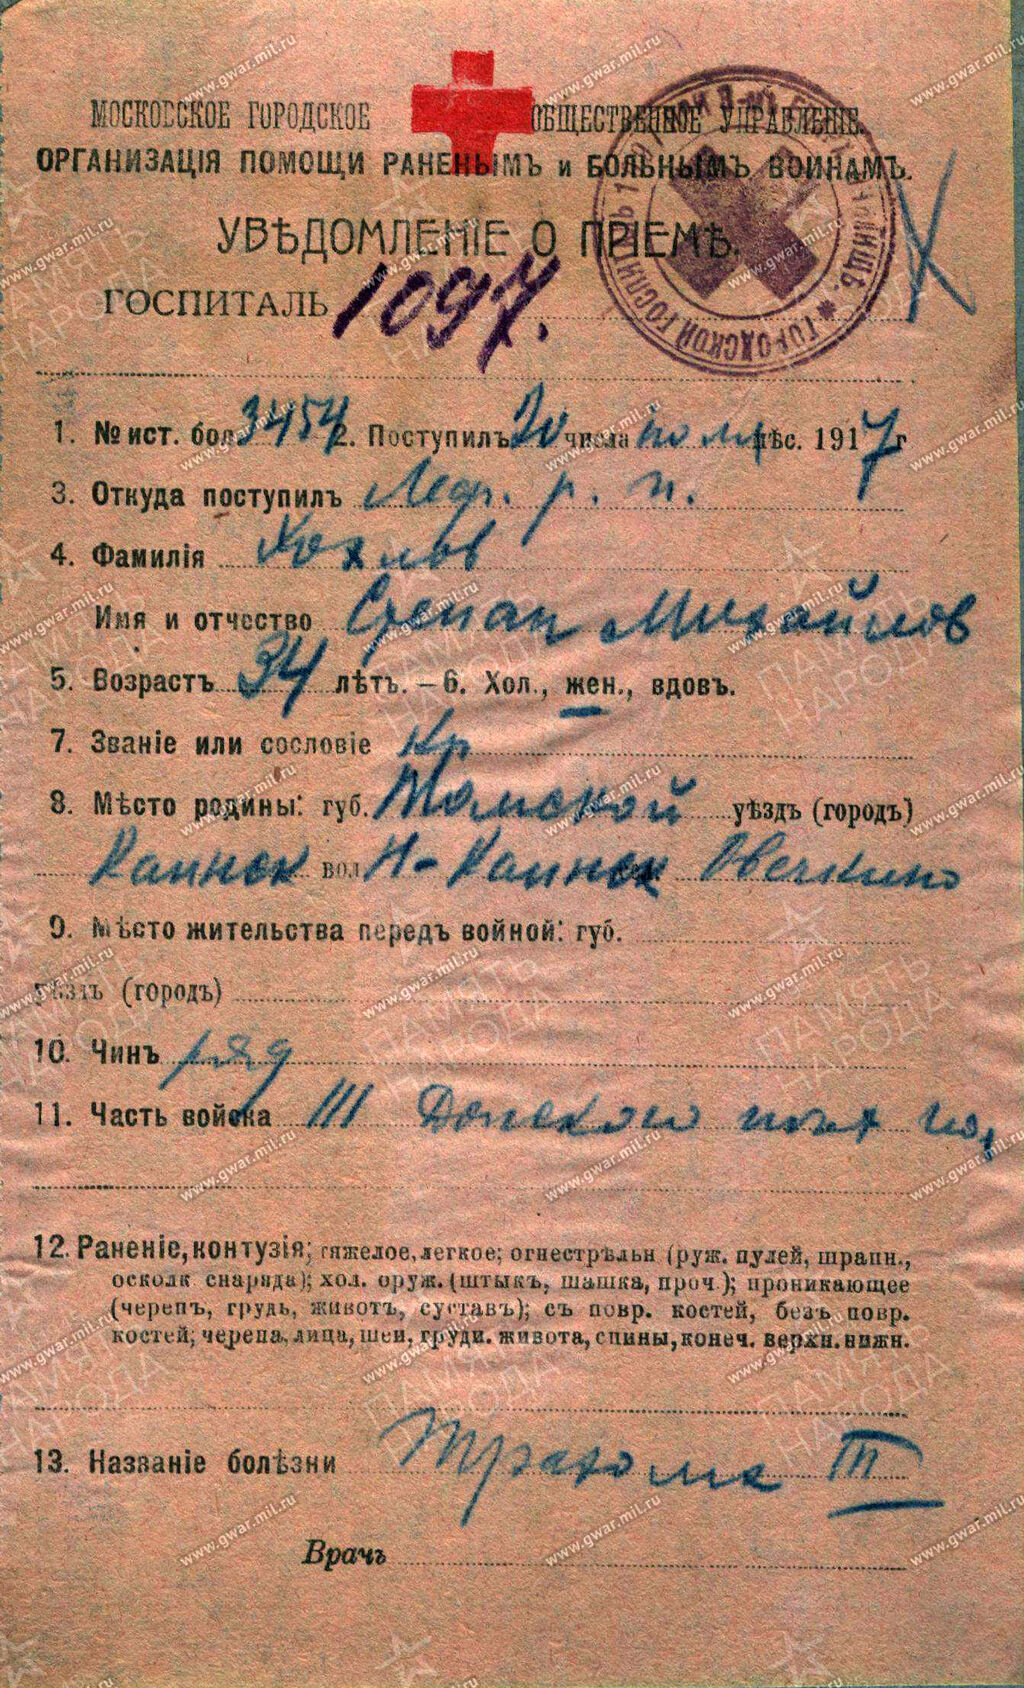 МОСКОВСКОЕ ГОРОДСКОЕ ОБЩЕСТВЕННОЕ УПРАВЛЕНІЕ.
ОРГАНИЗАЦІЯ ПОМОЩИ РАНЕНЫМЪ и БОЛЬНЫМЪ ВОИНАМЪ.
УВѢДОМЛЕНІЕ О ПРІЕМѢ.
ГОСПИТАЛЬ 1097.
1. № ист. бол. 3454 2. Поступилъ 20 числа мѣс. 1917 г
3. Откуда поступилъ р. п.
4. Фамилія Хохлов
Имя и отчество Степан Михайлов
5. Возрастъ 34 лѣтъ. – 6. Хол., жен., вдовъ.
7. Званіе или сословіе Кр
8. Мѣсто родины: губ. Томской уѣздъ (городъ)
Каинск вол. Н-Каинск Овечкино
9. Мѣсто жительства передъ войной: губ.
уѣздъ (городъ)
10. Чинъ ряд
11. Часть войска III Донского
12. Раненіе, контузія; тяжелое, легкое; огнестрѣльн (руж. пулей, шрапн.,
осколк снаряда); хол. оруж. (штыкъ, шашка, проч.); проникающее
(черепъ, грудь, животъ, суставъ); съ повр. костей, безъ повр.
костей; черепа, лица, шеи, груди, живота, спины, конеч. верхн. нижн.
13. Названіе болѣзни Трахома III
Врачъ